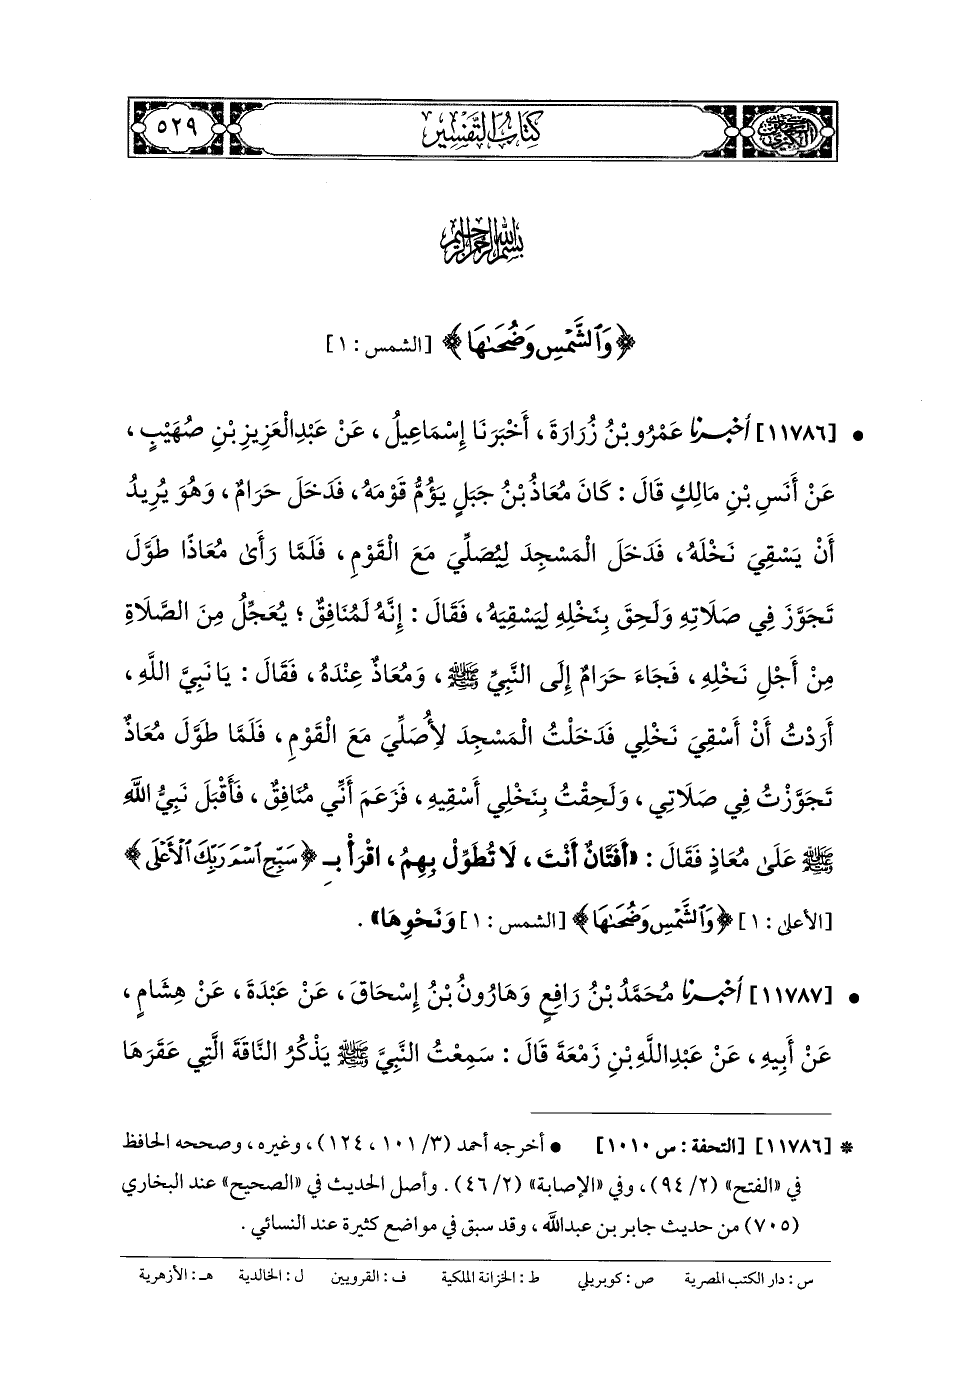 السنن الكبرى
كتاب التفسير
٥٢٩
بسم الله الرحمن الرحيم
﴿وَٱلشَّمْسِ وَضُحَىٰهَا﴾ [الشمس: ١]
• [١١٧٨٦] أخبرنا عَمْرُو بْنُ زُرَارَةَ، أَخْبَرَنَا إِسْمَاعِيلُ، عَنْ عَبْدِالْعَزِيزِ بْنِ صُهَيْبٍ،
عَنْ أَنَسِ بْنِ مَالِكٍ قَالَ: كَانَ مُعَاذُ بْنُ جَبَلٍ يَؤُمُّ قَوْمَهُ، فَدَخَلَ حَرَامٌ، وَهُوَ يُرِيدُ
أَنْ يَسْقِيَ نَخْلَهُ، فَدَخَلَ الْمَسْجِدَ لِيُصَلِّيَ مَعَ الْقَوْمِ، فَلَمَّا رَأَىٰ مُعَاذًا طَوَّلَ
تَجَوَّزَ فِي صَلَاتِهِ وَلَحِقَ بِنَخْلِهِ لِيَسْقِيَهُ، فَقَالَ: إِنَّهُ لَمُنَافِقٌ؛ يُعَجِّلُ مِنَ الصَّلَاةِ
مِنْ أَجْلِ نَخْلِهِ، فَجَاءَ حَرَامٌ إِلَى النَّبِيِّ ﷺ، وَمُعَاذٌ عِنْدَهُ، فَقَالَ: يَا نَبِيَّ اللَّهِ،
أَرَدْتُ أَنْ أَسْقِيَ نَخْلِي فَدَخَلْتُ الْمَسْجِدَ لِأُصَلِّيَ مَعَ الْقَوْمِ، فَلَمَّا طَوَّلَ مُعَاذٌ
تَجَوَّزْتُ فِي صَلَاتِي، وَلَحِقْتُ بِنَخْلِي أَسْقِيهِ، فَزَعَمَ أَنِّي مُنَافِقٌ، فَأَقْبَلَ نَبِيُّ اللَّهِ
ﷺ عَلَىٰ مُعَاذٍ فَقَالَ: «أَفَتَّانٌ أَنْتَ، لَا تُطَوِّلْ بِهِمُ، اقْرَأْ بِـ ﴿سَبِّحِ ٱسْمَ رَبِّكَ ٱلْأَعْلَى﴾
[الأعلى: ١] ﴿وَٱلشَّمْسِ وَضُحَىٰهَا﴾ [الشمس: ١] وَنَحْوِهَا».
• [١١٧٨٧] أخبرنا مُحَمَّدُ بْنُ رَافِعٍ وَهَارُونُ بْنُ إِسْحَاقَ، عَنْ عَبْدَةَ، عَنْ هِشَامٍ،
عَنْ أَبِيهِ، عَنْ عَبْدِاللَّهِ بْنِ زَمْعَةَ قَالَ: سَمِعْتُ النَّبِيَّ ﷺ يَذْكُرُ النَّاقَةَ الَّتِي عَقَرَهَا
* [١١٧٨٦] [التحفة: س ١٠١٠] • أخرجه أحمد (٣/ ١٠١، ١٢٤)، وغيره، وصححه الحافظ
في «الفتح» (٢/ ٩٤)، وفي «الإصابة» (٢/ ٤٦). وأصل الحديث في «الصحيح» عند البخاري
(٧٠٥) من حديث جابر بن عبدالله، وقد سبق في مواضع كثيرة عند النسائي.
س: دار الكتب المصرية ص: كوبريلي ط: الخزانة الملكية ف: القرويين ل: الخالدية هـ: الأزهرية